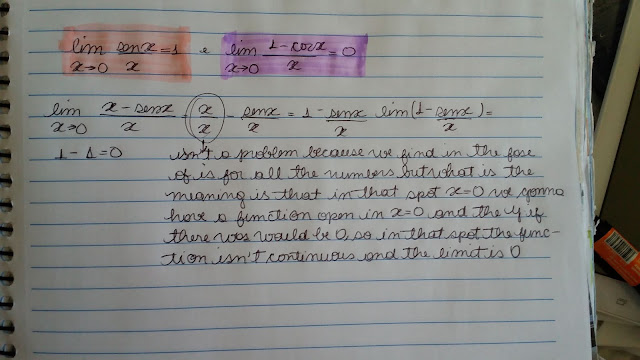 lim x→0 senx/x = 1 e lim x→0 1-cosx/x = 0
lim x→0 x-senx/x x/x - senx/x = 1 - senx/x lim(1-senx/x)=
1-1=0 isn't a problem because we find in the fose
of is for all the numbers but what is the
meaning is that in that spot x=0 we gonna
have a function open in x=0 and the y if
there was would be 0, so in that spot the func-
tion isn't continuous and the limit is 0